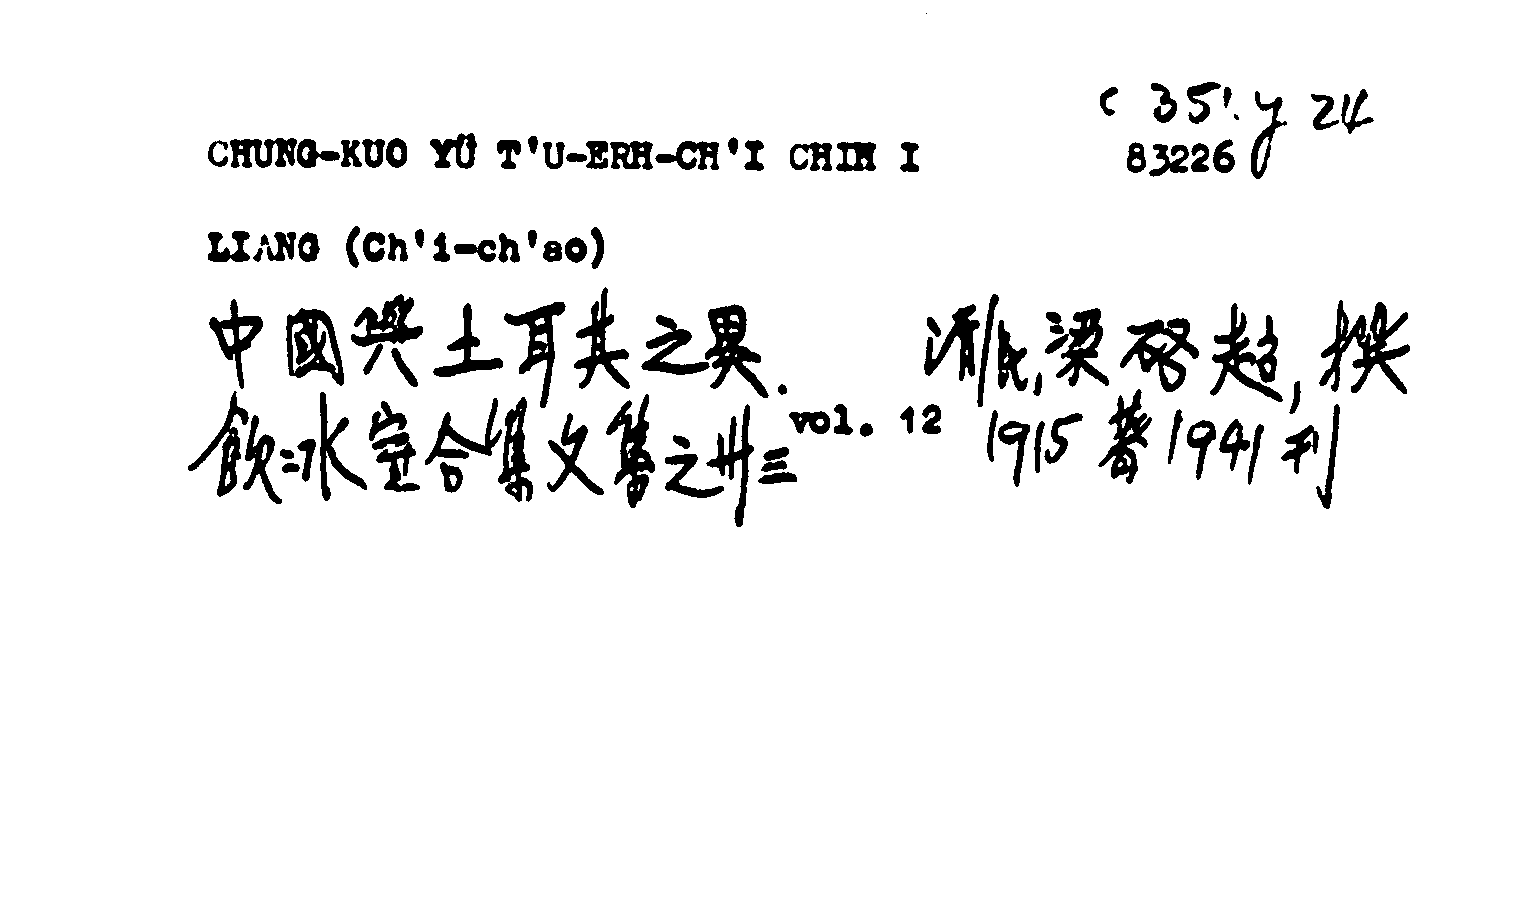 C 35'. y 24
CHUNG-KUO YÜ T'U-ERH-CH'I CHIH I 83226
LIANG (Ch'i-ch'ao)
中國與土耳其之異. 清/民,梁啓超,撰
飲冰室合集文集之卅三 vol. 12 1915著1941刊